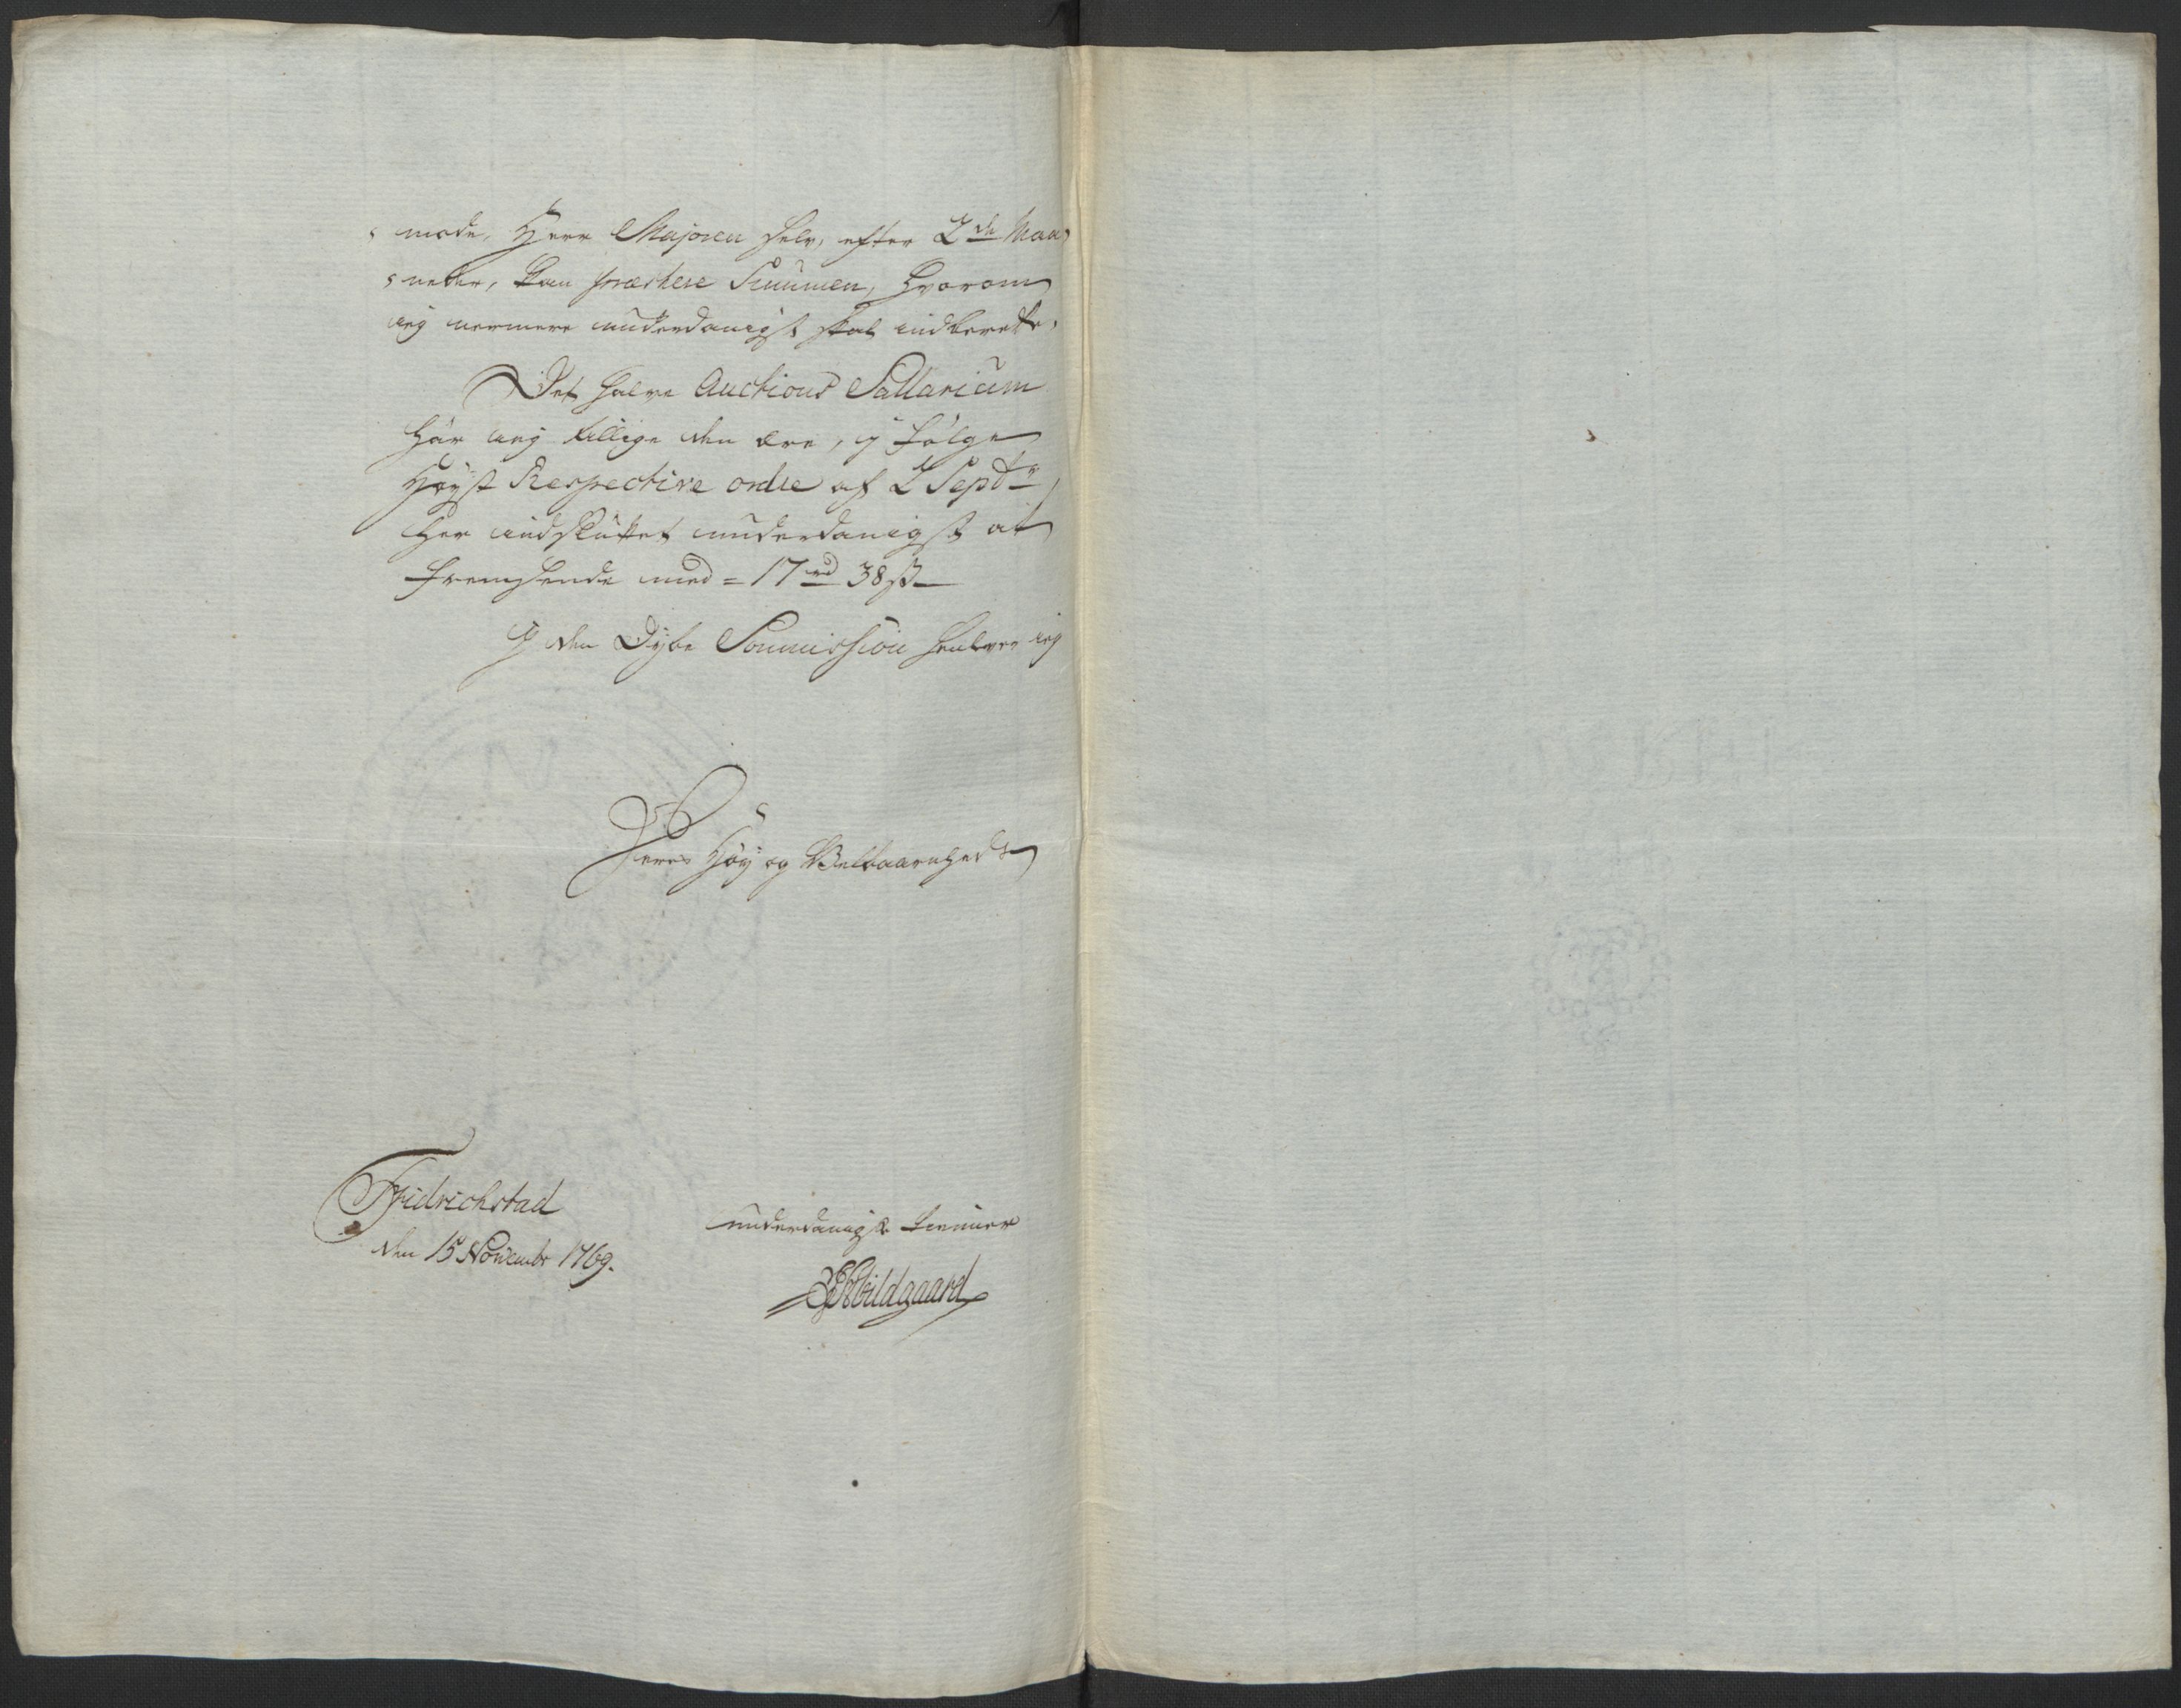 mode, Herr Majoren selv, efter 2de Maa-
neder, kan præstere Summen, hvorom
ieg nermere underdanigst skal indberette.
Det halve Auctions Sallarium
har ieg tillige den ære, i følge
Høyst Respective ordre af 2 Septr
her indsluttet underdanigst at
fremsende med = 17 rd 38 s
I den Dybe Soumission henlever ieg
Deres Høy og Velbaarenheds
Fridrichstad
den 15 Novembr 1769.
underdanigste tienner
Abildgaard